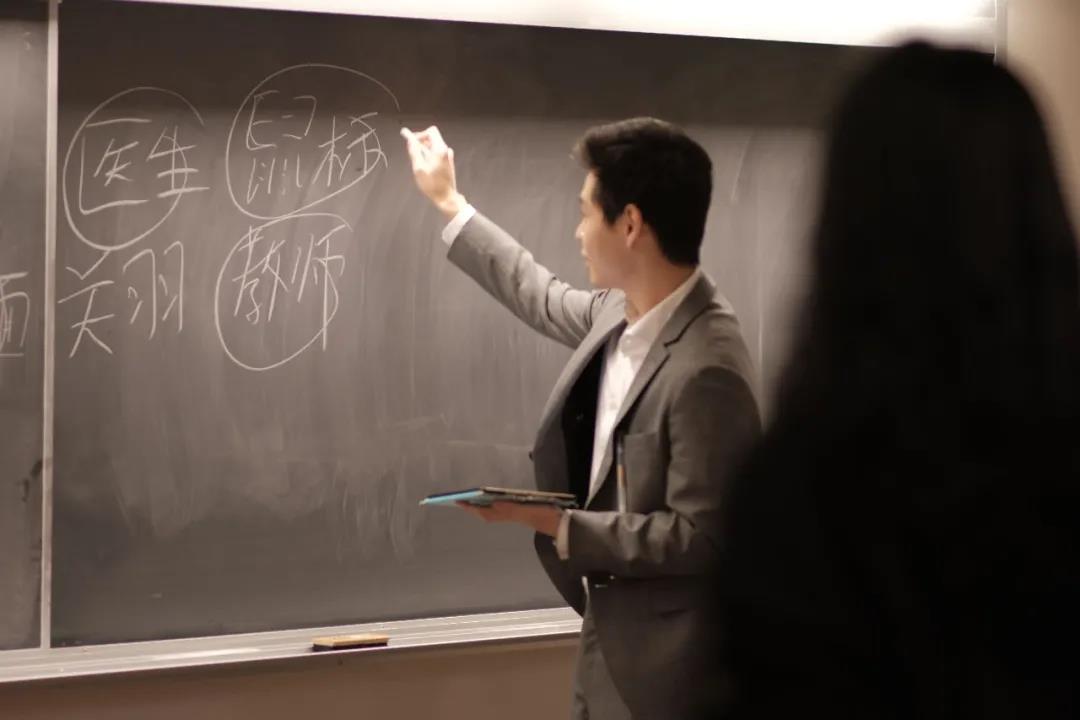 医生 鼠标
关羽 教师